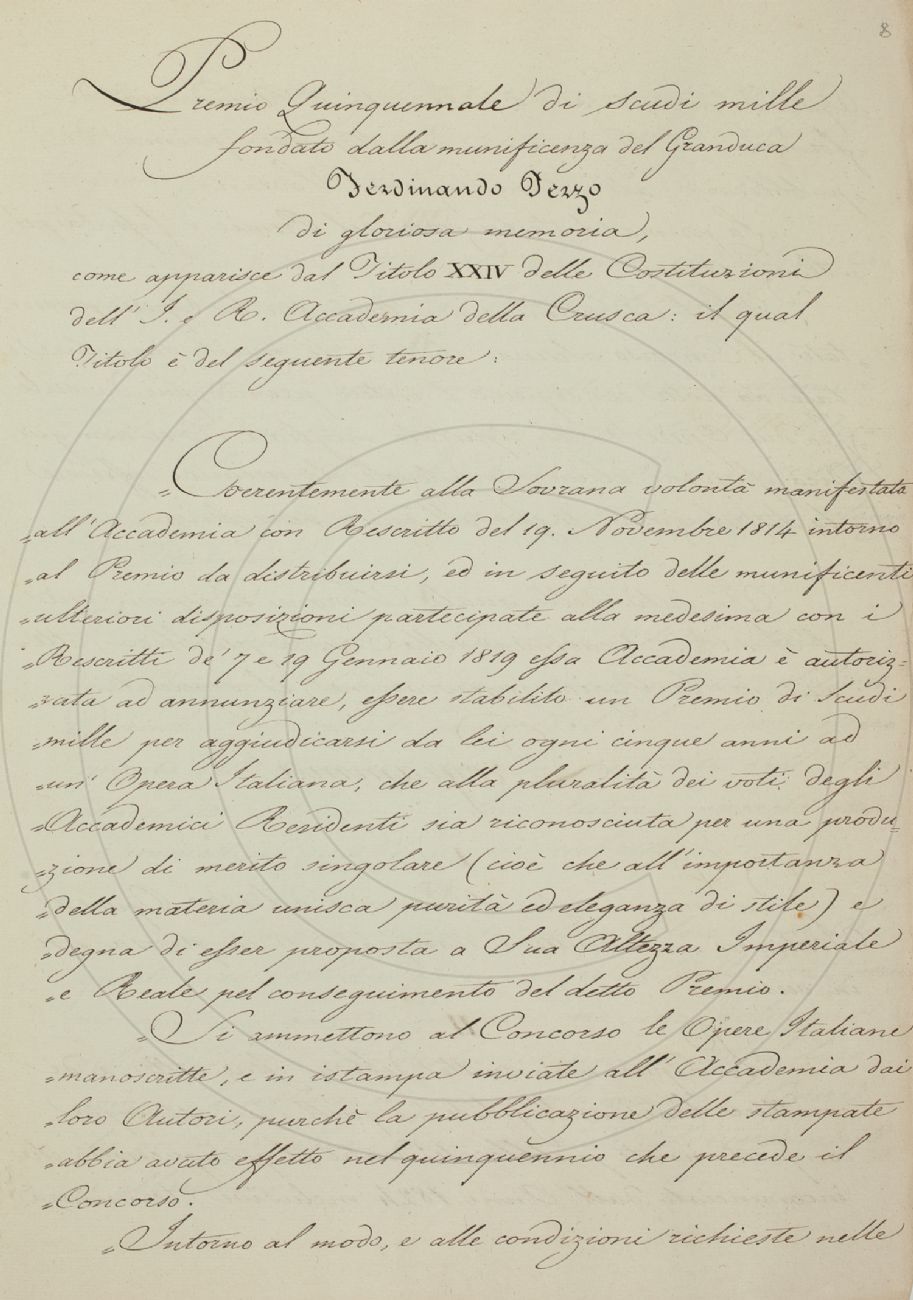 8
Premio Quinquennale di scudi mille
fondato dalla munificenza del Granduca
Ferdinando Terzo
di gloriosa memoria,
come apparisce dal Titolo XXIV delle Costituzioni
dell' I. e R. Accademia della Crusca: il qual
Titolo è del seguente tenore:
„Coerentemente alla Sovrana volontà manifestata
„all' Accademia con Rescritto del 19. Novembre 1814 intorno
„al Premio da distribuirsi, ed in seguito delle munificenti
„ulteriori disposizioni partecipate alla medesima con i
„Rescritti de' 7 e 19 Gennaio 1819 essa Accademia è autoriz=
„zata ad annunziare, essere stabilito un Premio di Scudi
„mille per aggiudicarsi da lei ogni cinque anni ad
„un' Opera Italiana, che alla pluralità dei voti degli
„Accademici Residenti sia riconosciuta per una produ=
„zione di merito singolare (cioè che all'importanza
„della materia unisca purità ed eleganza di stile) e
„degna di esser proposta a Sua Altezza Imperiale
„e Reale pel conseguimento del detto Premio.
„Si ammettono al Concorso le Opere Italiane
„manoscritte, e in istampa inviate all' Accademia dai
„loro Autori, purchè la pubblicazione delle stampate
„abbia avuto effetto nel quinquennio che precede il
„Concorso.
„Intorno al modo, e alle condizioni richieste nelle